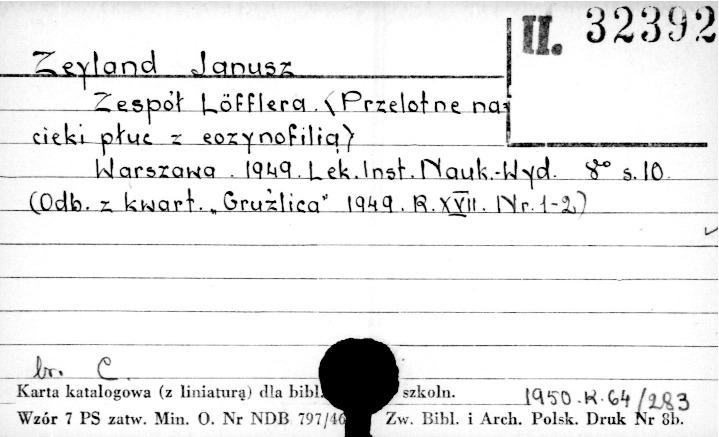 II. 32392
Zeyland Janusz
Zespół Löfflera. (Przelotne na-
cieki płuc z eozynofilią)
Warszawa. 1949. Lek. Inst. Nauk.-Wyd. 8° s. 10.
(Odb. z kwart. „Gruźlica" 1949. R. XVII. Nr. 1-2)
br. C.
1950. K. 64/283
Karta katalogowa (z liniaturą) dla bibl. szkoln.
Wzór 7 PS zatw. Min. O. Nr NDB 797/46 Zw. Bibl. i Arch. Polsk. Druk Nr 8b.